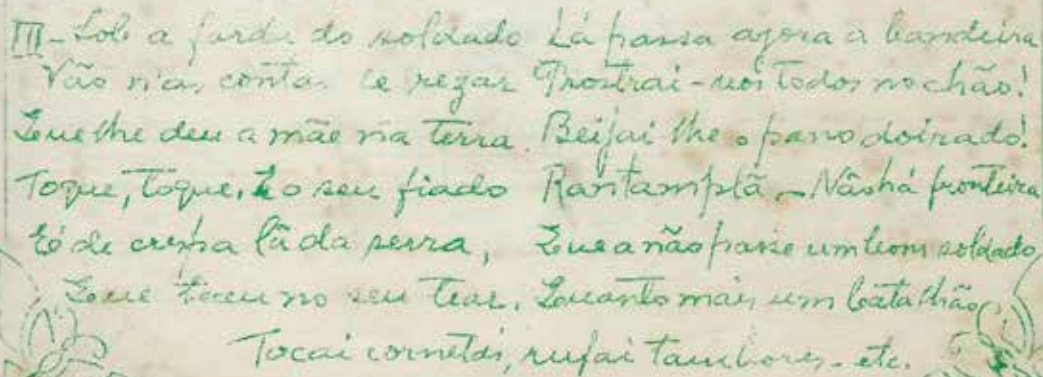 III - Sob a farda do soldado
Vão n'as contas de rezar
Que lhe deu a mãe na terra.
Toque, toque, e o seu fiado
É de crespa lã da serra,
Que teceu no seu tear.
Lá passa agora a bandeira
Prostrai-vos todos no chão!
Beijai lhe o pano doirado!
Rantamplã - Não há fronteira
Que a não passe um bom soldado,
Quanto mais um batalhão.
Tocai cornetas, rufai tambores - etc.